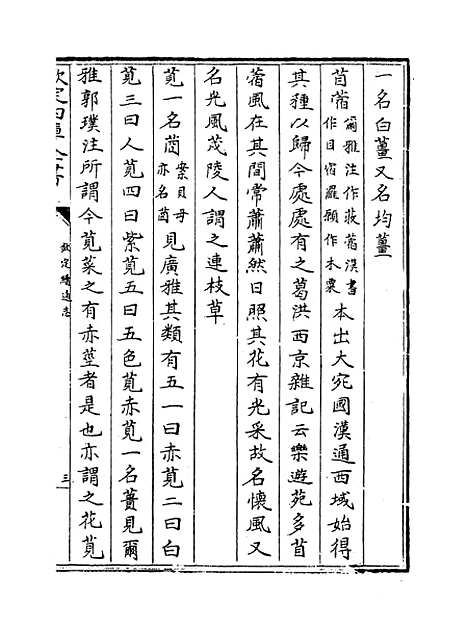 一名白薑又名均薑
苜蓿爾雅注作荍蓿漢書作目宿羅願作木粟本出大宛國漢通西域始得
其種以歸今處處有之葛洪西京雜記云樂遊苑多苜
蓿風在其間常蕭蕭然日照其花有光采故名懷風又
名光風茂陵人謂之連枝草
莧一名䓲案貝母亦名䓲見廣雅其類有五一曰赤莧二曰白
莧三曰人莧四曰紫莧五曰五色莧赤莧一名蕢見爾
雅郭璞注所謂今莧菜之有赤莖者是也亦謂之花莧
欽定四庫全書
欽定續通志
三